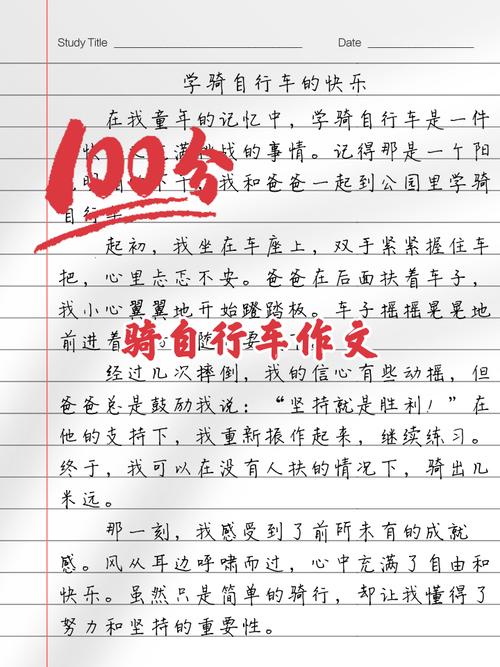 Study Title
Date
学骑自行车的快乐
在我童年的记忆中，学骑自行车是一件
充满挑战的事情。记得那是一个阳
我和爸爸一起到公园里学骑
自行车
100分
起初，我坐在车座上，双手紧紧握住车
把，心里忐忑不安。爸爸在后面扶着车子，
我小心翼翼地开始蹬踏板。车子摇摇晃晃地
前进着
骑自行车作文
经过几次摔倒，我的信心有些动摇，但
爸爸总是鼓励我说：“坚持就是胜利！”在
他的支持下，我重新振作起来，继续练习。
终于，我可以在没有人扶的情况下，骑出几
米远。
那一刻，我感受到了前所未有的成就
感。风从耳边呼啸而过，心中充满了自由和
快乐。虽然只是简单的骑行，却让我懂得了
努力和坚持的重要性。